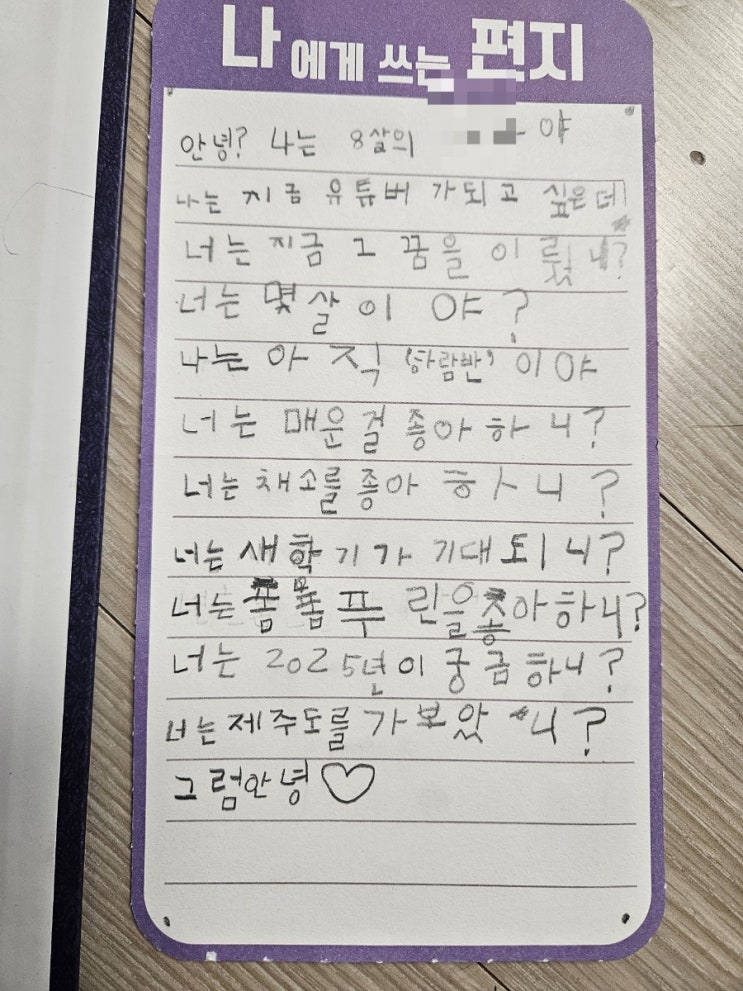 나에게 쓰는 편지
안녕? 나는 8살의 야
나는 지금 유튜버 가되고 싶은데
너는 지금 그 꿈을 이뤘니?
너는 몇살이야?
나는 아직 '하람반' 이야
너는 매운걸 좋아하니?
너는 채소를 좋아하니?
너는 새학기가 기대되니?
너는 폼폼푸린을좋아하니?
너는 2025년이 궁금하니?
너는제주도를 가보았니?
그럼안녕♡